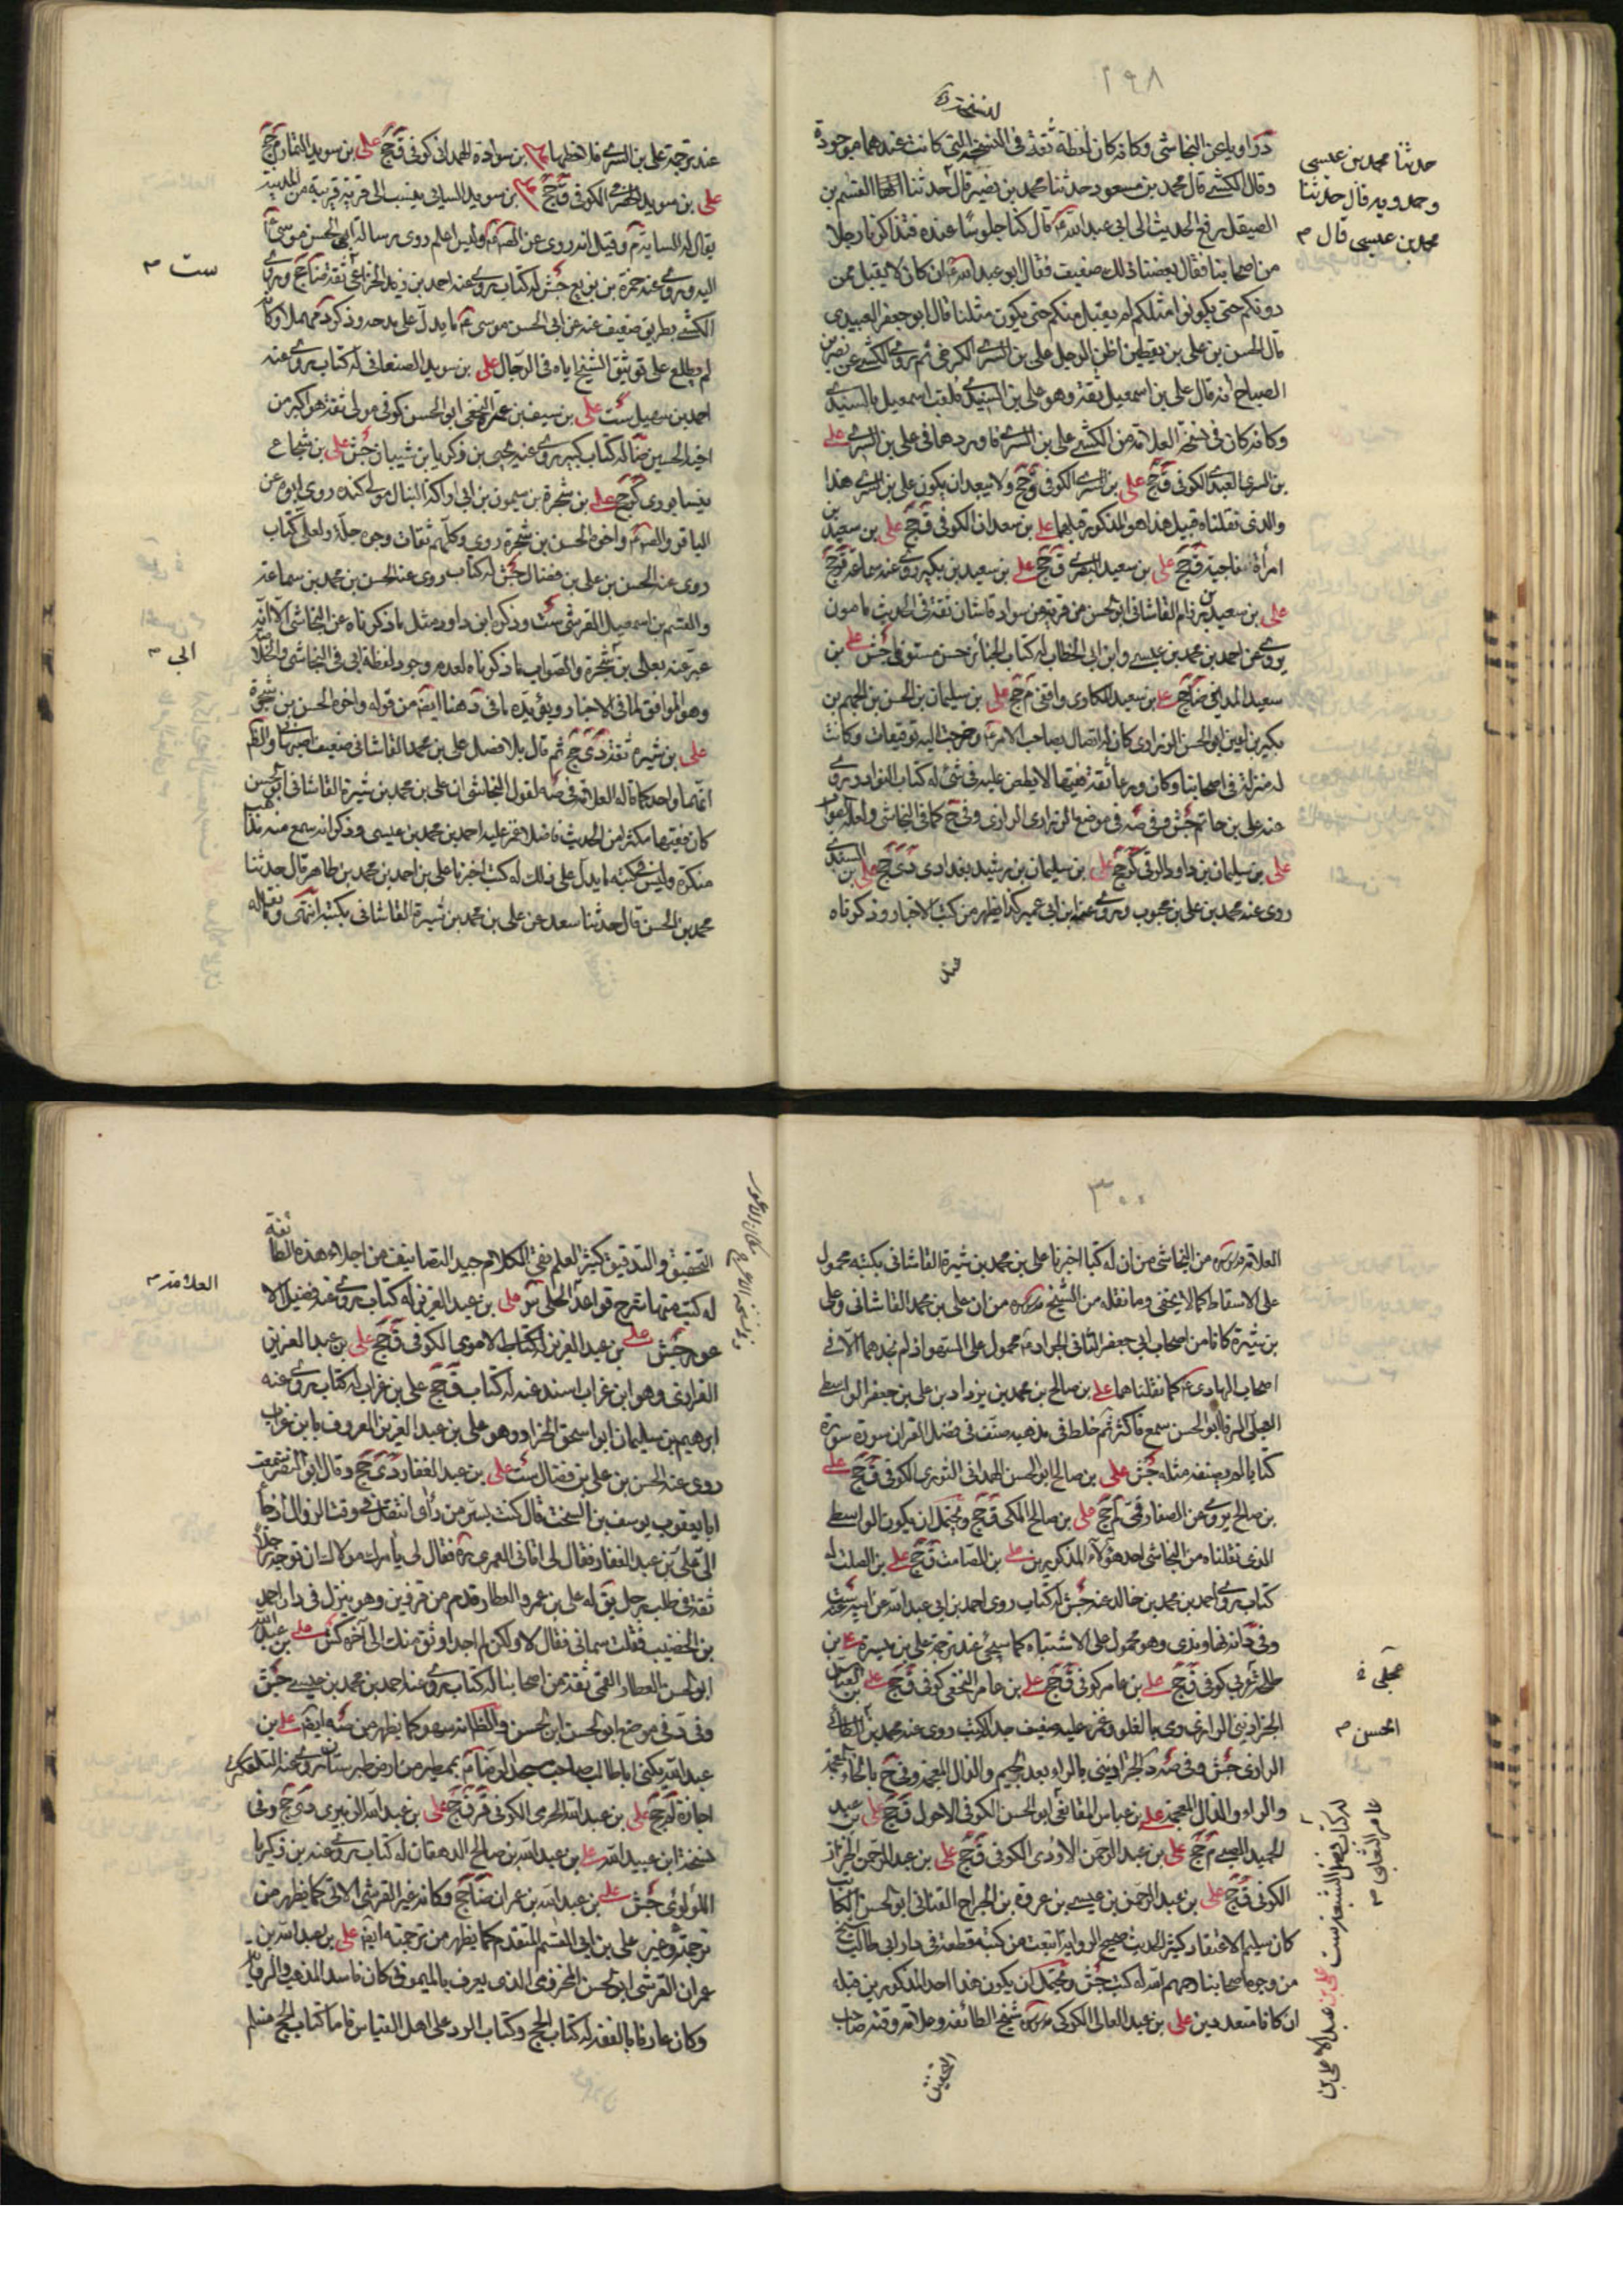 ٢٩٨
حدثنا محمد بن عيسى
وحمدويه قال حدثنا
محمد بن عيسى قال م
د راويا عن النجاشي وكانه كان لفظة ثقة في النسخة التي كانت عندهما موجودة
وقال الكشي قال محمد بن مسعود حدثنا محمد بن نصير قال حدثنا القسم بن
الصيقل رفع الحديث الى ابي عبد الله قال كنا جلوسا عنده فتذاكرنا رجلا
من اصحابنا فقال بعضنا ذلك ضعيف فقال ابو عبد الله ان كان لا يقبل ممن
دونكم حتى يكونوا مثلكم لم يقبل منكم حتى يكون مثلنا قال ابو جعفر العبيدي
قال الحسن بن علي بن يقطين اظن الرجل علي بن السري الكرخي ثم روى الكشي عن نصر بن
الصباح انه قال علي بن اسمعيل ثقة وهو علي بن السندي فلقب اسمعيل بالسندي
وكانه كان في نسخة العلامة من الكشي علي بن السري فاوردهما في علي بن السري علي
بن السري العبدي الكوفي ق جخ علي بن السري الكوفي ق جخ ولا يبعد ان يكون علي بن السري هذا
والذي نقلناه قبيل هذا هو المذكور قبلهما علي بن سعدان الكوفي ق جخ علي بن سعيد بن
امرأة ناجية ق جخ علي بن سعيد البصري ق جخ علي بن سعيد بن بكير روى عنه سماعة ق جخ
علي بن سعيد بن رزام القاشاني ابو الحسن من قرية من سواد قاشان ثقة في الحديث مامون
يروي عن احمد بن محمد بن عيسى وابن ابي الخطاب له كتاب الجنائز حسن مستوفي جش علي بن
سعيد المدايني ضا جخ علي بن سعيد المكاري واقفي م جخ علي بن سليمان بن الحسن بن الجهم بن
بكير بن اعين ابو الحسن الزراري كان له اتصال بصاحب الامر وخرجت اليه توقيعات وكانت
له منزلة في اصحابنا وكان ورعا ثقة فقيها لا يطعن عليه في شئ له كتاب النوادر روى
عنه علي بن حاتم جش وفي صه في موضع الزراري الرازي وفي ح كما في النجاشي ولعله اصوا
علي بن سليمان بن داود الرقي كر جخ علي بن سليمان بن رشيد بغدادي دي جخ علي بن السندي
روى عنه محمد بن علي بن محبوب وروى عنه ابن ابي عمير كذا يظهر من كتب الاخبار وذكرناه
عند
عند ترجمة علي بن السري فلاحظهما علي بن سوادة الهمداني كوفي ق جخ علي بن سويد التمار م جخ
علي بن سويد الكوفي ق جخ علي بن سويد السائي ينسب الى قرية قريبة من المدينة
يقال لها السايه م وقيل انه روى عن الصم وليس اعلم روى رسالة ابي الحسن موسى
اليه روى عنه حمزة بن بزيع جش له كتاب روى عنه احمد بن زيد الخزاعي ست ثقة ضا جخ وروى
الكشي بطريق ضعيف عنه عن ابي الحسن موسى ما يدل على مدحه وذكره مهملا وكانه
لم يطلع على توثيق الشيخ اياه في الرجال علي بن سويد الصنعاني له كتاب روى عنه
احمد بن سهيل ست علي بن سيف بن عميرة النخعي ابو الحسن كوفي مولى ثقة هو اكبر من
اخيه الحسين ضا له كتاب كبير روى عنه يحيى بن زكريا بن شيبان جش علي بن شجاع
نيسابوري كر جخ علي بن شجرة بن ميمون بن ابي اراكة النبال مولى كنده روى ابوه عن
الباقر والصم واخوه الحسن بن شجرة روى وكلهم ثقات وجوه جلة ولعلي كتاب
روى عنه الحسن بن علي بن فضال جش له كتاب روى عنه الحسن بن محمد بن سماعة
والقسم بن اسمعيل القرشي ست وذكر ابن داود مثل ما ذكرناه عن النجاشي الا انه
عبر عنه بعلي بن شجرة والصواب ما ذكرناه لعدم وجود لفظة ابي في النجاشي والخلا
وهو الموافق لما في الاخبار ويؤيده ما في د هنا ايضا من قوله واخوه الحسن بن شجرة
علي بن شيرة ثقة دي جخ ثم قال بلا فصل علي بن محمد القاشاني ضعيف اصبهاني والظم
انهما واحد كما قاله العلامة في صه لقول النجاشي ان علي بن محمد بن شيرة القاشاني ابو الحسن
كان فقيها مكثرا من الحديث فاضلا غمز عليه احمد بن محمد بن عيسى وذكر انه سمع منه مذاهب
منكرة وليس في كتبه ما يدل على ذلك له كتب اخبرنا علي بن احمد بن محمد بن طاهر قال حدثنا
محمد بن الحسن قال حدثنا سعد عن علي بن محمد بن شيرة القاشاني بكتبه انتهى
ست م
ابي م
٣٠٠
العلامة قدس سره من النجاشي من ان له كتبا اخبرنا علي بن محمد بن شيرة القاشاني بكتبه محمول
على الاسقاط كما لا يخفى وما نقله من الشيخ قدس سره من ان علي بن محمد القاشاني وعلي
بن شيرة كانا من اصحاب ابي جعفر الثاني الجواد محمول على السهو اذ لم نجدهما الا في
اصحاب الهادي كما نقلناهما علي بن صالح بن محمد بن يزداد بن علي بن جعفر الواسطي
العجلي الرفا ابو الحسن سمع فاكثر ثم خلط في مذهبه صنف في فضل القران سورة سورة
كتابا لم يصنف مثله جش علي بن صالح ابو الحسن الهمداني الثوري الكوفي ق جخ علي
بن صالح يروي عن الصفار في لم جخ علي بن صالح المكي ق جخ ويحتمل ان يكون الواسطي
الذي نقلناه من النجاشي احد هؤلاء المذكورين علي بن الصامت ق جخ علي بن الصلت له
كتاب روى احمد بن محمد بن خالد عنه جش له كتاب روى احمد بن ابي عبد الله عن ابيه عنه ست
وفي د انه نهاوندي وهو محمول على الاشتباه كما سيجئ عند ترجمة علي بن ميسرة علي بن
طلحة كوفي ق جخ علي بن عامر كوفي ق جخ علي بن عامر النخعي كوفي ق جخ علي بن العباس
الجراذيني الرازي رمي بالغلو وغمز عليه ضعيف جدا له كتب روى عنه محمد بن الطائي
الرازي جش وفي صه د الجراذيني بالراء بعد الجيم والذال المعجمة وفي ح بالخاء المعجمة
والراء والذال المعجمة علي بن عباس المقانعي ابو الحسن الكوفي الاحول ق جخ علي بن عبد
الحميد الضبي م جخ علي بن عبد الرحمن الاودي الكوفي ق جخ علي بن عبد الرحمن الخزاز
الكوفي ق جخ علي بن عبد الرحمن بن عيسى بن عروة بن الجراح القناني ابو الحسن الكاتب
كان سليم الاعتقاد كثير الحديث صحيح الرواية ابتعت من كتبه قطعة في دار ابي طالب شيخ
من وجوه اصحابنا رحمهم الله له كتب جش ويحتمل ان يكون هذا احد المذكورين قبله
ان كانا متعددين علي بن عبد العالي الكركي قدس سره شيخ الطائفة وعلامة وقته صاحب
التحقيق
عجلي
الحسن م
عامر الثعلبي م
له كتاب فضل الشيعة ست علي بن عبد الاعلى بن
التحقيق والتدقيق كثير العلم نقي الكلام جيد التصانيف من اجلاء هذه الطائفة
له كتب منها شرح قواعد الحلي علي بن عبد العزيز له كتاب روى عنه فضيل
جش علي بن عبد العزيز الاموي الكوفي ق جخ علي بن عبد العزيز
الفزاري وهو ابن غراب اسند عنه له كتاب ق جخ علي بن غراب له كتاب روى عنه
ابرهيم بن سليمان ابو اسحق الخزاز وهو علي بن عبد العزيز المعروف بابن غراب
روى عنه الحسن بن علي بن فضال ست علي بن عبد الغفار دي جخ وقال ابو النضر سمعت
ابا يعقوب يوسف بن السخت قال كنت بسر من راى اتنفل في وقت الزوال اذ جاء
الى علي بن عبد الغفار فقال لي اتاني العمري ره فقال لي يأمرك مولاك ان توجه رجلا
ثقة في طلب رجل يق له علي بن عمرو العطار قدم من قزوين وهو ينزل في دار احمد
بن الخضيب فقلت سماني فقال لا ولكن لم اجد اوثق منك الى آخره كش علي بن عبد الله
ابو الحسن العطار القمي ثقة من اصحابنا له كتاب روى عنه احمد بن محمد بن عيسى جش
وفي د في موضع ابو الحسن ابن الحسن والظ انه سهو كما يظهر من صه ايضا علي بن
عبد الله يكنى ابا طالب
اجازة لم جخ علي بن عبد الله الجرمي الكوفي ق جخ علي بن عبد الله الزبيري دي جخ وفي
نسخة ابن عبيد الله علي بن عبد الله بن صالح الدهقان له كتاب روى عنه بن زكريا
اللؤلؤي جش علي بن عبد الله بن عمران ضا جخ وكانه غير القرشي الاتي كما يظهر من
ترجمته وغير علي بن ابي القسم المتقدم كما يظهر من ترجمته ايضا علي بن عبد الله بن
عمران القرشي ابو الحسن المخزومي الذي يعرف بالميموني كان فاسد المذهب والرواية
وكان عارفا بالفقه له كتاب الحج وكتاب الرد على اهل القياس فاما كتاب الحج فسلم
العلامة م